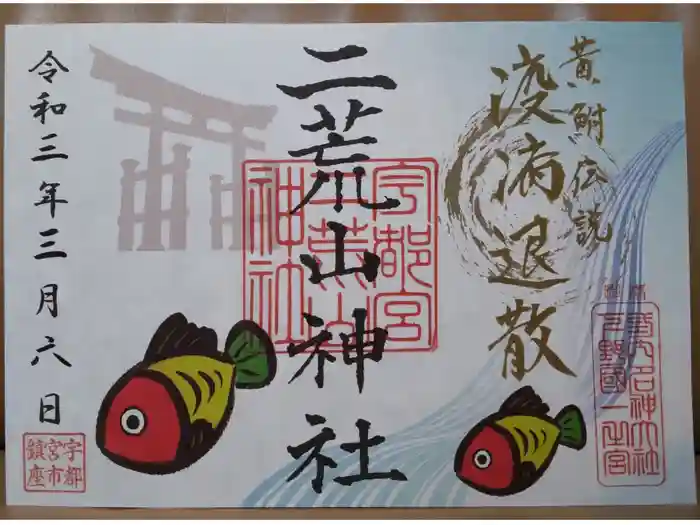 黄鮒伝説
疫病退散
二荒山神社
宇都宮
二荒山
神社
令和三年三月六日
宇都
宮市
鎮座
式内名神大社
下野國一之宮